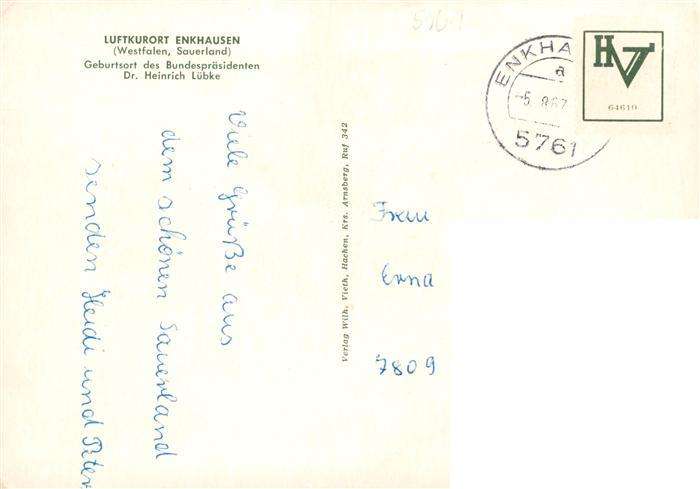 LUFTKURORT ENKHAUSEN
(Westfalen, Sauerland)
Geburtsort des Bundespräsidenten
Dr. Heinrich Lübke
Viele Grüße aus
dem schönen Sauerland
senden Heidi und Peter
Verlag Wilh. Vieth, Hachen, Krs. Arnsberg, Ruf 342
ENKHA
a
-5. 8.67
5761
HV
64619
Frau
Erna
7809